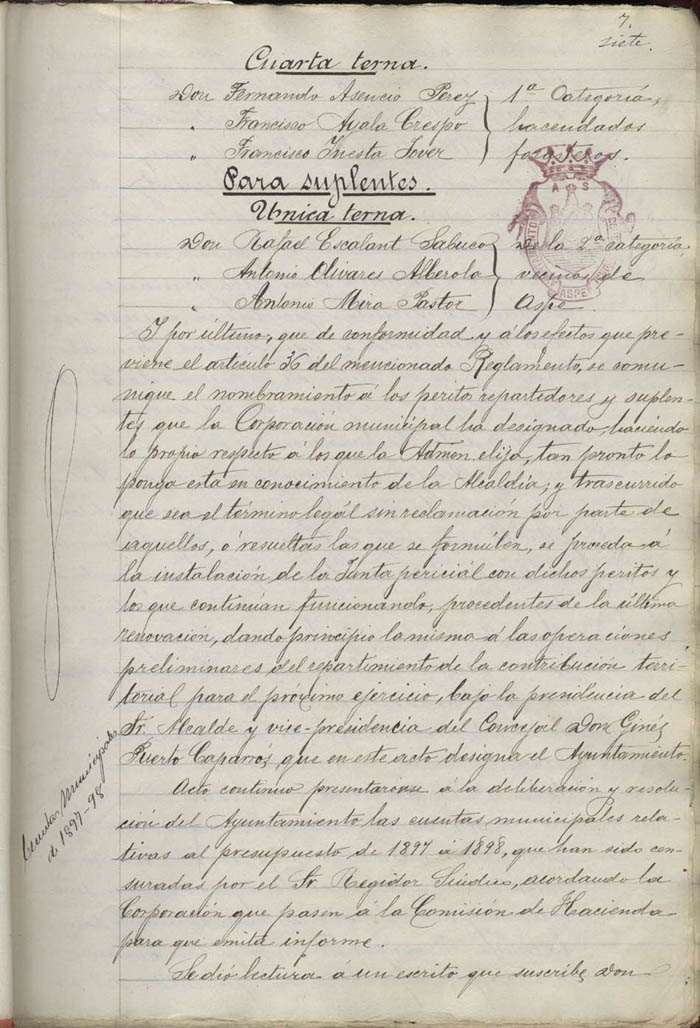 7.
siete.
Cuarta terna.
Don Fernando Asencio Perez } 1ª Categoría,
" Francisco Ayala Crespo } hacendados
" Francisco Inesta Jover } forasteros.
Para suplentes.
Unica terna.
Don Rafael Escalant Sabuco } De la 2ª categoría
" Antonio Olivares Alberola } vecinos de
" Antonio Mira Pastor } Aspe.
Y por último, que de conformidad y á los efectos que pre-
viene el artículo 36 del mencionado Reglamento, se comu-
nique el nombramiento á los peritos repartidores y suplen-
tes que la Corporación municipal ha designado, haciendo
lo propio respecto á los que la Admon. elija, tan pronto lo
ponga esta en conocimiento de la Alcaldía; y trascurrido
que sea el término legál sin reclamación por parte de
aquellos, ó resueltas las que se formúlen, se proceda á
la instalación de la Junta periciál con dichos peritos y
los que continúan funcionando, procedentes de la última
renovación, dando principio la misma á las operaciones
preliminares del repartimiento de la contribución terri-
torial para el próximo ejercicio, bajo la presidencia del
Sr. Alcalde y vice-presidencia del Concejál Don Ginés
Puerto Caparrós que en este acto designa el Ayuntamiento.
Cuentas Municipales
de 1897-98
Acto continuo presentáronse á la deliberación y resolu-
ción del Ayuntamiento las cuentas municipales rela-
tivas al presupuesto de 1897 á 1898, que han sido cen-
suradas por el Sr. Regidor Síndico, acordando la
Corporación que pasen á la Comisión de Hacienda
para que emita informe.
Se dió lectura á un escrito que suscribe Don